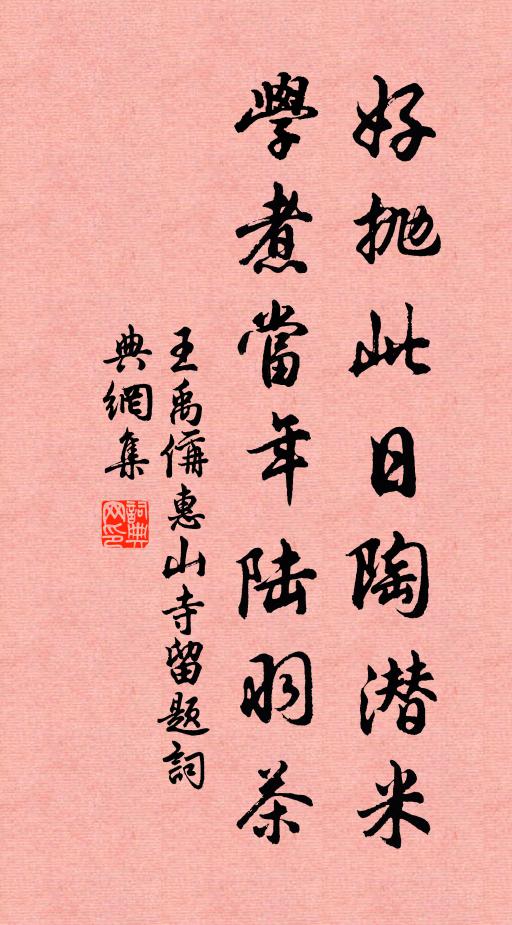 好抛此日陶潜米
學煮當年陆羽茶
王禹偁惠山寺留题詞
典網集
詞典
网印